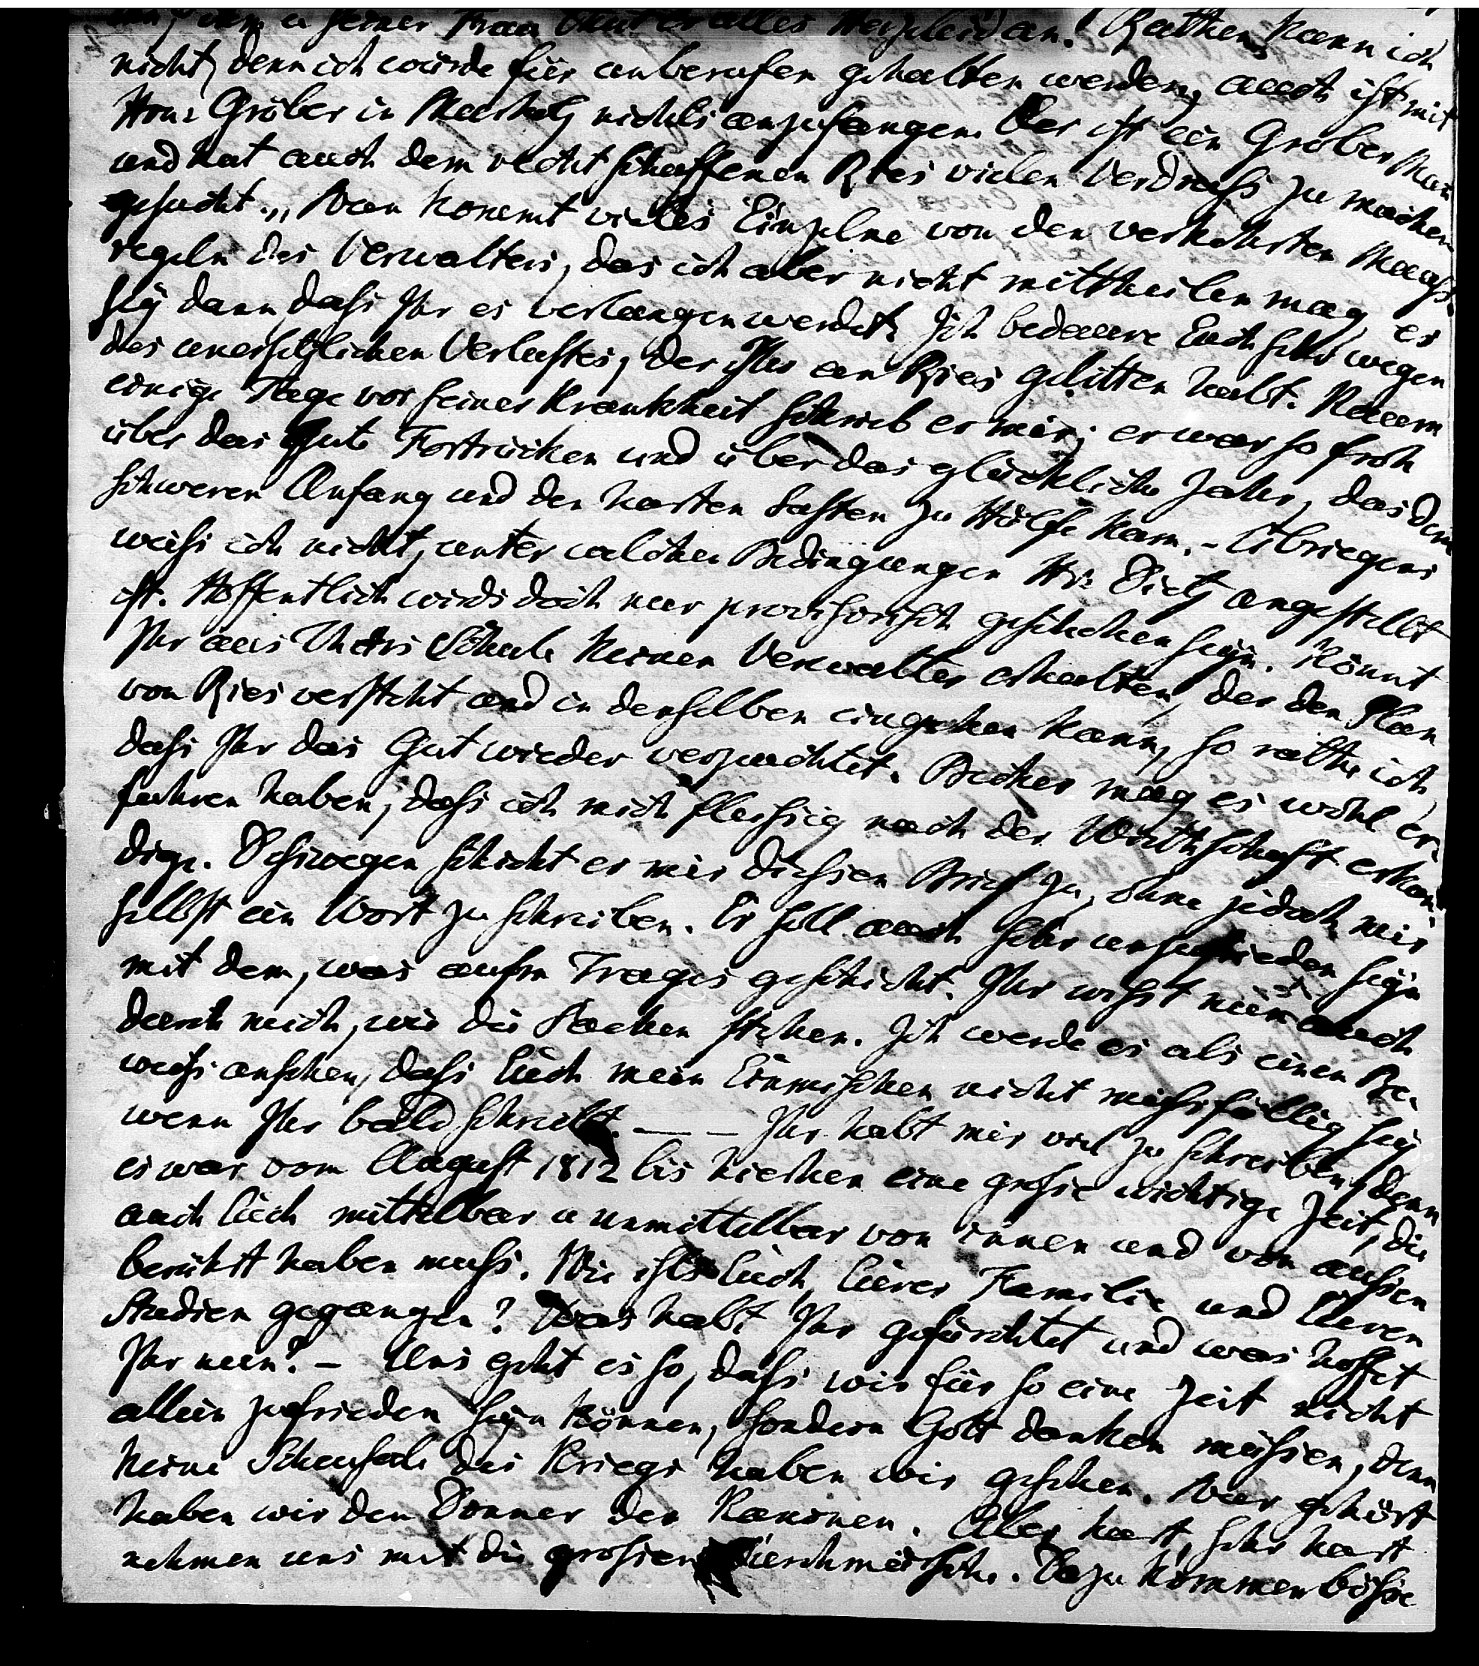 ihm u seiner Frau thut er alles Herzleid an. Rathen kann ich
nicht, denn ich würde für unberufen gehalten werden, auch ist mit
Hrn: Gröber in nichts anzufangen. Der ist ein Grober Man
und hat auch dem rechtschaffenen Ries vielen Verdruss zu machen
gesucht.„ Nun kommt vieles Einzelne von den verkehrten Maass-
regeln des Verwalters, das ich aber nicht mittheilen mag, es
sey dann, dass Ihr es verlangen werdet. Ich bedaure Euch sehr wegen
des unersetzlichen Verlustes, den Ihr an Ries gelitten habt. Kaum
einige Tage vor seiner Krankheit schrieb er mir; er war so froh
über das gute Fortrücken und über das glückliche Jahr, das dem
schweren Anfang und den harten Lasten zu Hülfe kam. – Übriegens
weiss ich nicht, unter welchen Bedingungen Hr: Dietz angestellt
ist. Hoffentlich wirds doch nur provisorisch geschehen seyn. Könnt
Ihr aus Schule keinen Verwalter erhalten, der den Plan
von Ries versteht und in denselben eingehen kann, so rathe ich
dass Ihr das Gut wieder verpachtet. Becker mag es wohl er-
fahren haben, dass ich mich fleissig nach der Wirthschaft erkun-
dige. Desswegen schickt er mir diessen Brief zu, ohne jedoch mir
selbst ein Wort zu schreiben. Er soll auch sehr unzufrieden seyn
mit dem, was aufm Trages geschieht. Ihr wisst nun auch
durch mich, wie die Sachen stehen. Ich werde es als einen Be-
weiss ansehen, dass Euch mein Einmischen nicht missfällig sey
wenn Ihr bald schreibt. — — Ihr habt mir viel zu schreiben, denn
es war vom August 1812 bis hierher eine grosse wichtige Zeit, die
auch Euch mittelbar u unmittelbar von innen und von aussen
berührt haben muss. Wie ists Euch, Eurer Familie und Euren
Studien gegangen? Was habt Ihr gefürchtet und was hoffet
Ihr nun? – Uns geht es so, dass wir für so eine Zeit nicht
allein zufrieden seyn können, sondern Gott danken müssen, denn
keine Scheusale des Kriegs haben wir gesehen. Nur gehört
haben wir den Donner der Kanonen. Aber hart, sehr hart
nehmen uns mit die grossen Durchmärsche. Dazu kommen böse